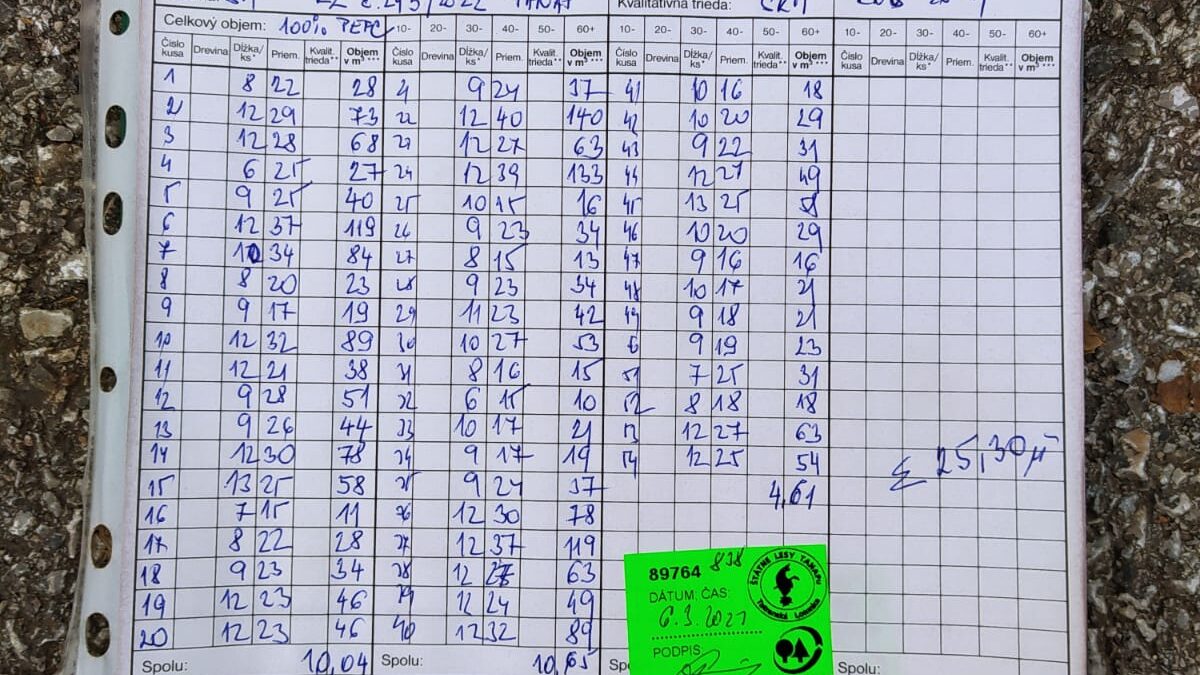 Kvalitatívna trieda:
Celkový objem: 100% TEPC 10- 20- 30- 40- 50- 60+ 10- 20- 30- 40- 50- 60+ 10- 20- 30- 40- 50- 60+
Číslo kusa Drevina Dĺžka/ks* Priem. Kvalit. trieda** Objem v m³ *** Číslo kusa Drevina Dĺžka/ks* Priem. Kvalit. trieda** Objem v m³ *** Číslo kusa Drevina Dĺžka/ks* Priem. Kvalit. trieda** Objem v m³ *** Číslo kusa Drevina Dĺžka/ks* Priem. Kvalit. trieda** Objem v m³ ***
1 8 22 28 9 24 37 41 10 16 18
2 12 29 73 22 12 40 140 42 10 20 29
3 12 28 68 23 12 27 63 43 9 22 31
4 6 25 27 24 12 39 133 44 12 27 49
5 9 25 40 25 10 15 16 45 13 25 58
6 12 37 119 26 9 23 34 46 10 20 29
7 10 34 84 27 8 15 13 47 9 16 16
8 8 20 23 28 9 23 34 48 10 17 21
9 9 17 19 29 11 23 42 49 9 18 21
10 12 32 89 30 10 27 53 9 19 23
11 12 21 38 31 8 16 15 51 7 25 31
12 9 28 51 32 6 15 10 52 8 18 18
13 9 26 44 33 10 17 21 53 12 27 63
14 12 30 78 34 9 17 19 54 12 25 54
Σ 25,30
15 13 25 58 35 9 24 37 4,61
16 7 15 11 36 12 30 78
17 8 22 28 37 12 37 119
18 9 23 34 38 12 27 63
19 12 23 46 39 12 24 49
20 12 23 46 40 12 32 89
Spolu: 10,04 Spolu: 10,65 Sp Spolu:
89764 838
ŠTÁTNE LESY TANAPU
Tatranská Lomnica
DÁTUM: ČAS:
6.3.2021
PODPIS: